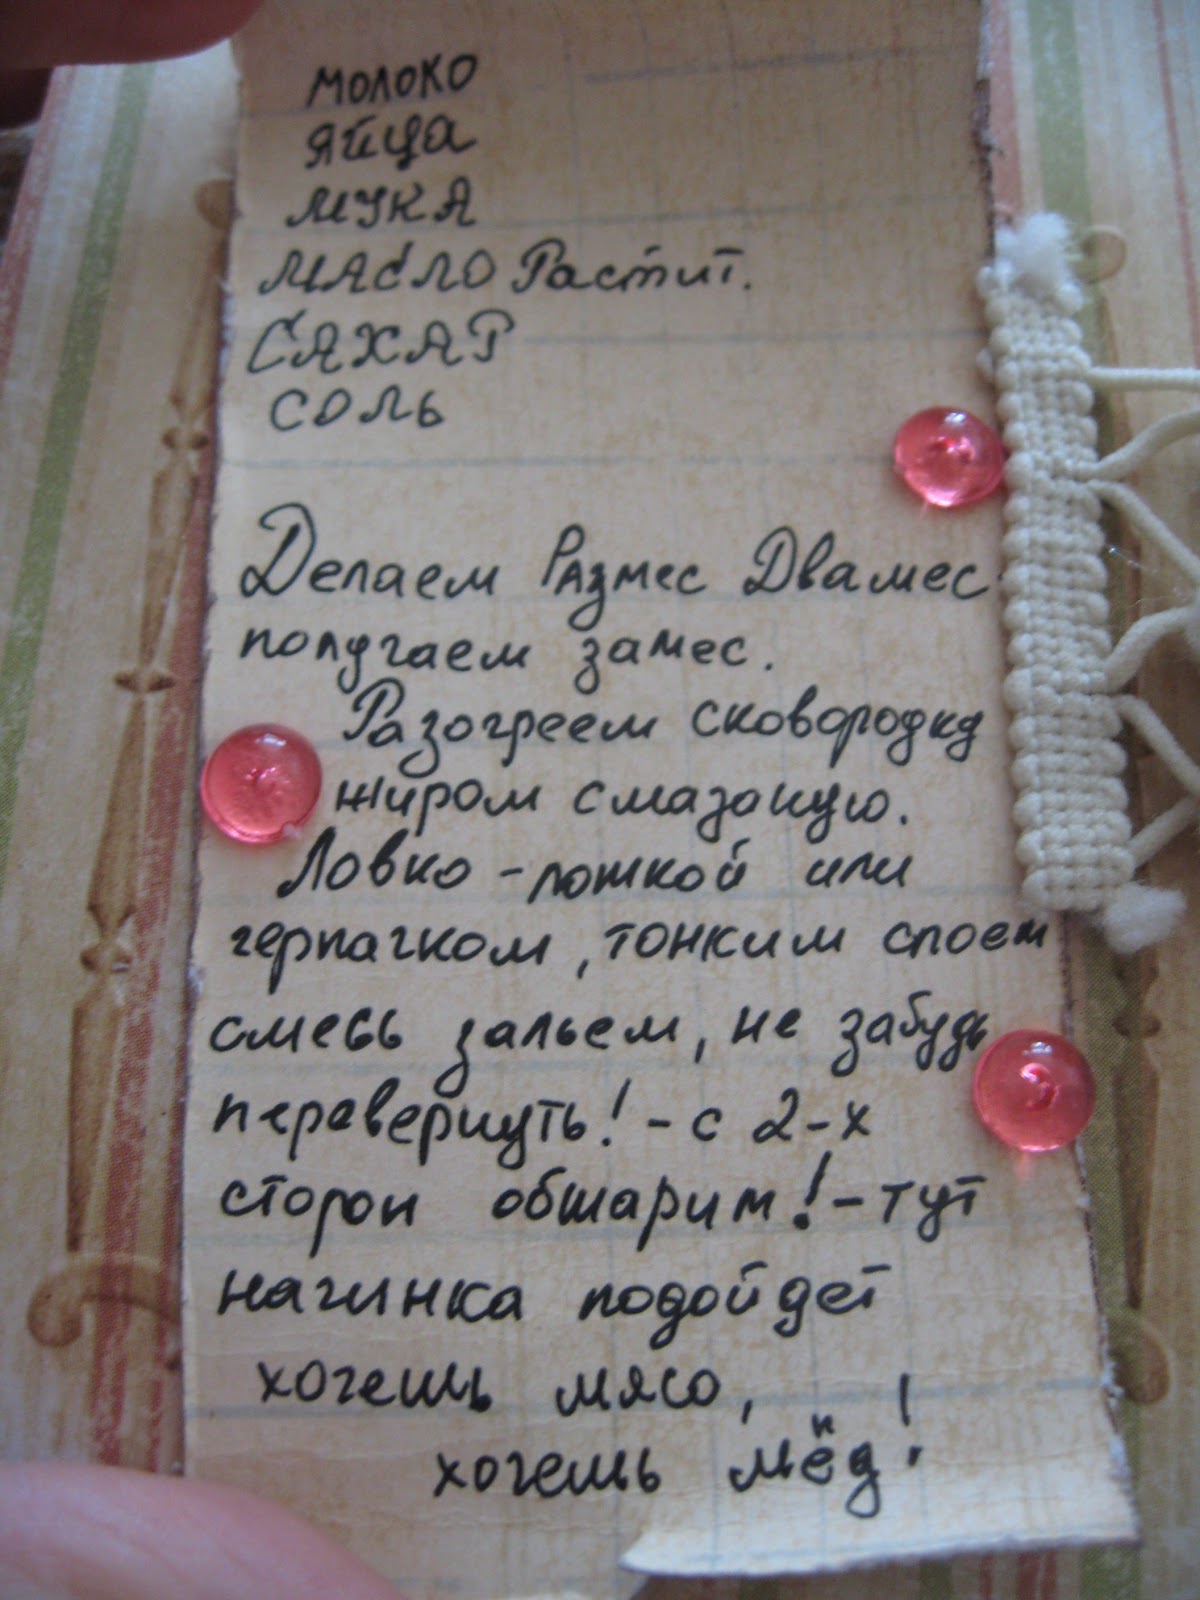 молоко
яйца
мука
масло растит.
сахар
соль
Делаем Размес Двамес
получаем замес.
Разогреем сковородку
жиром смазаную.
Ловко - ложкой или
черпачком, тонким слоем
смесь зальем, не забудь
перевернуть! - с 2-х
сторон обшарим! - тут
начинка подойдет
хочешь мясо,
хочешь мёд!